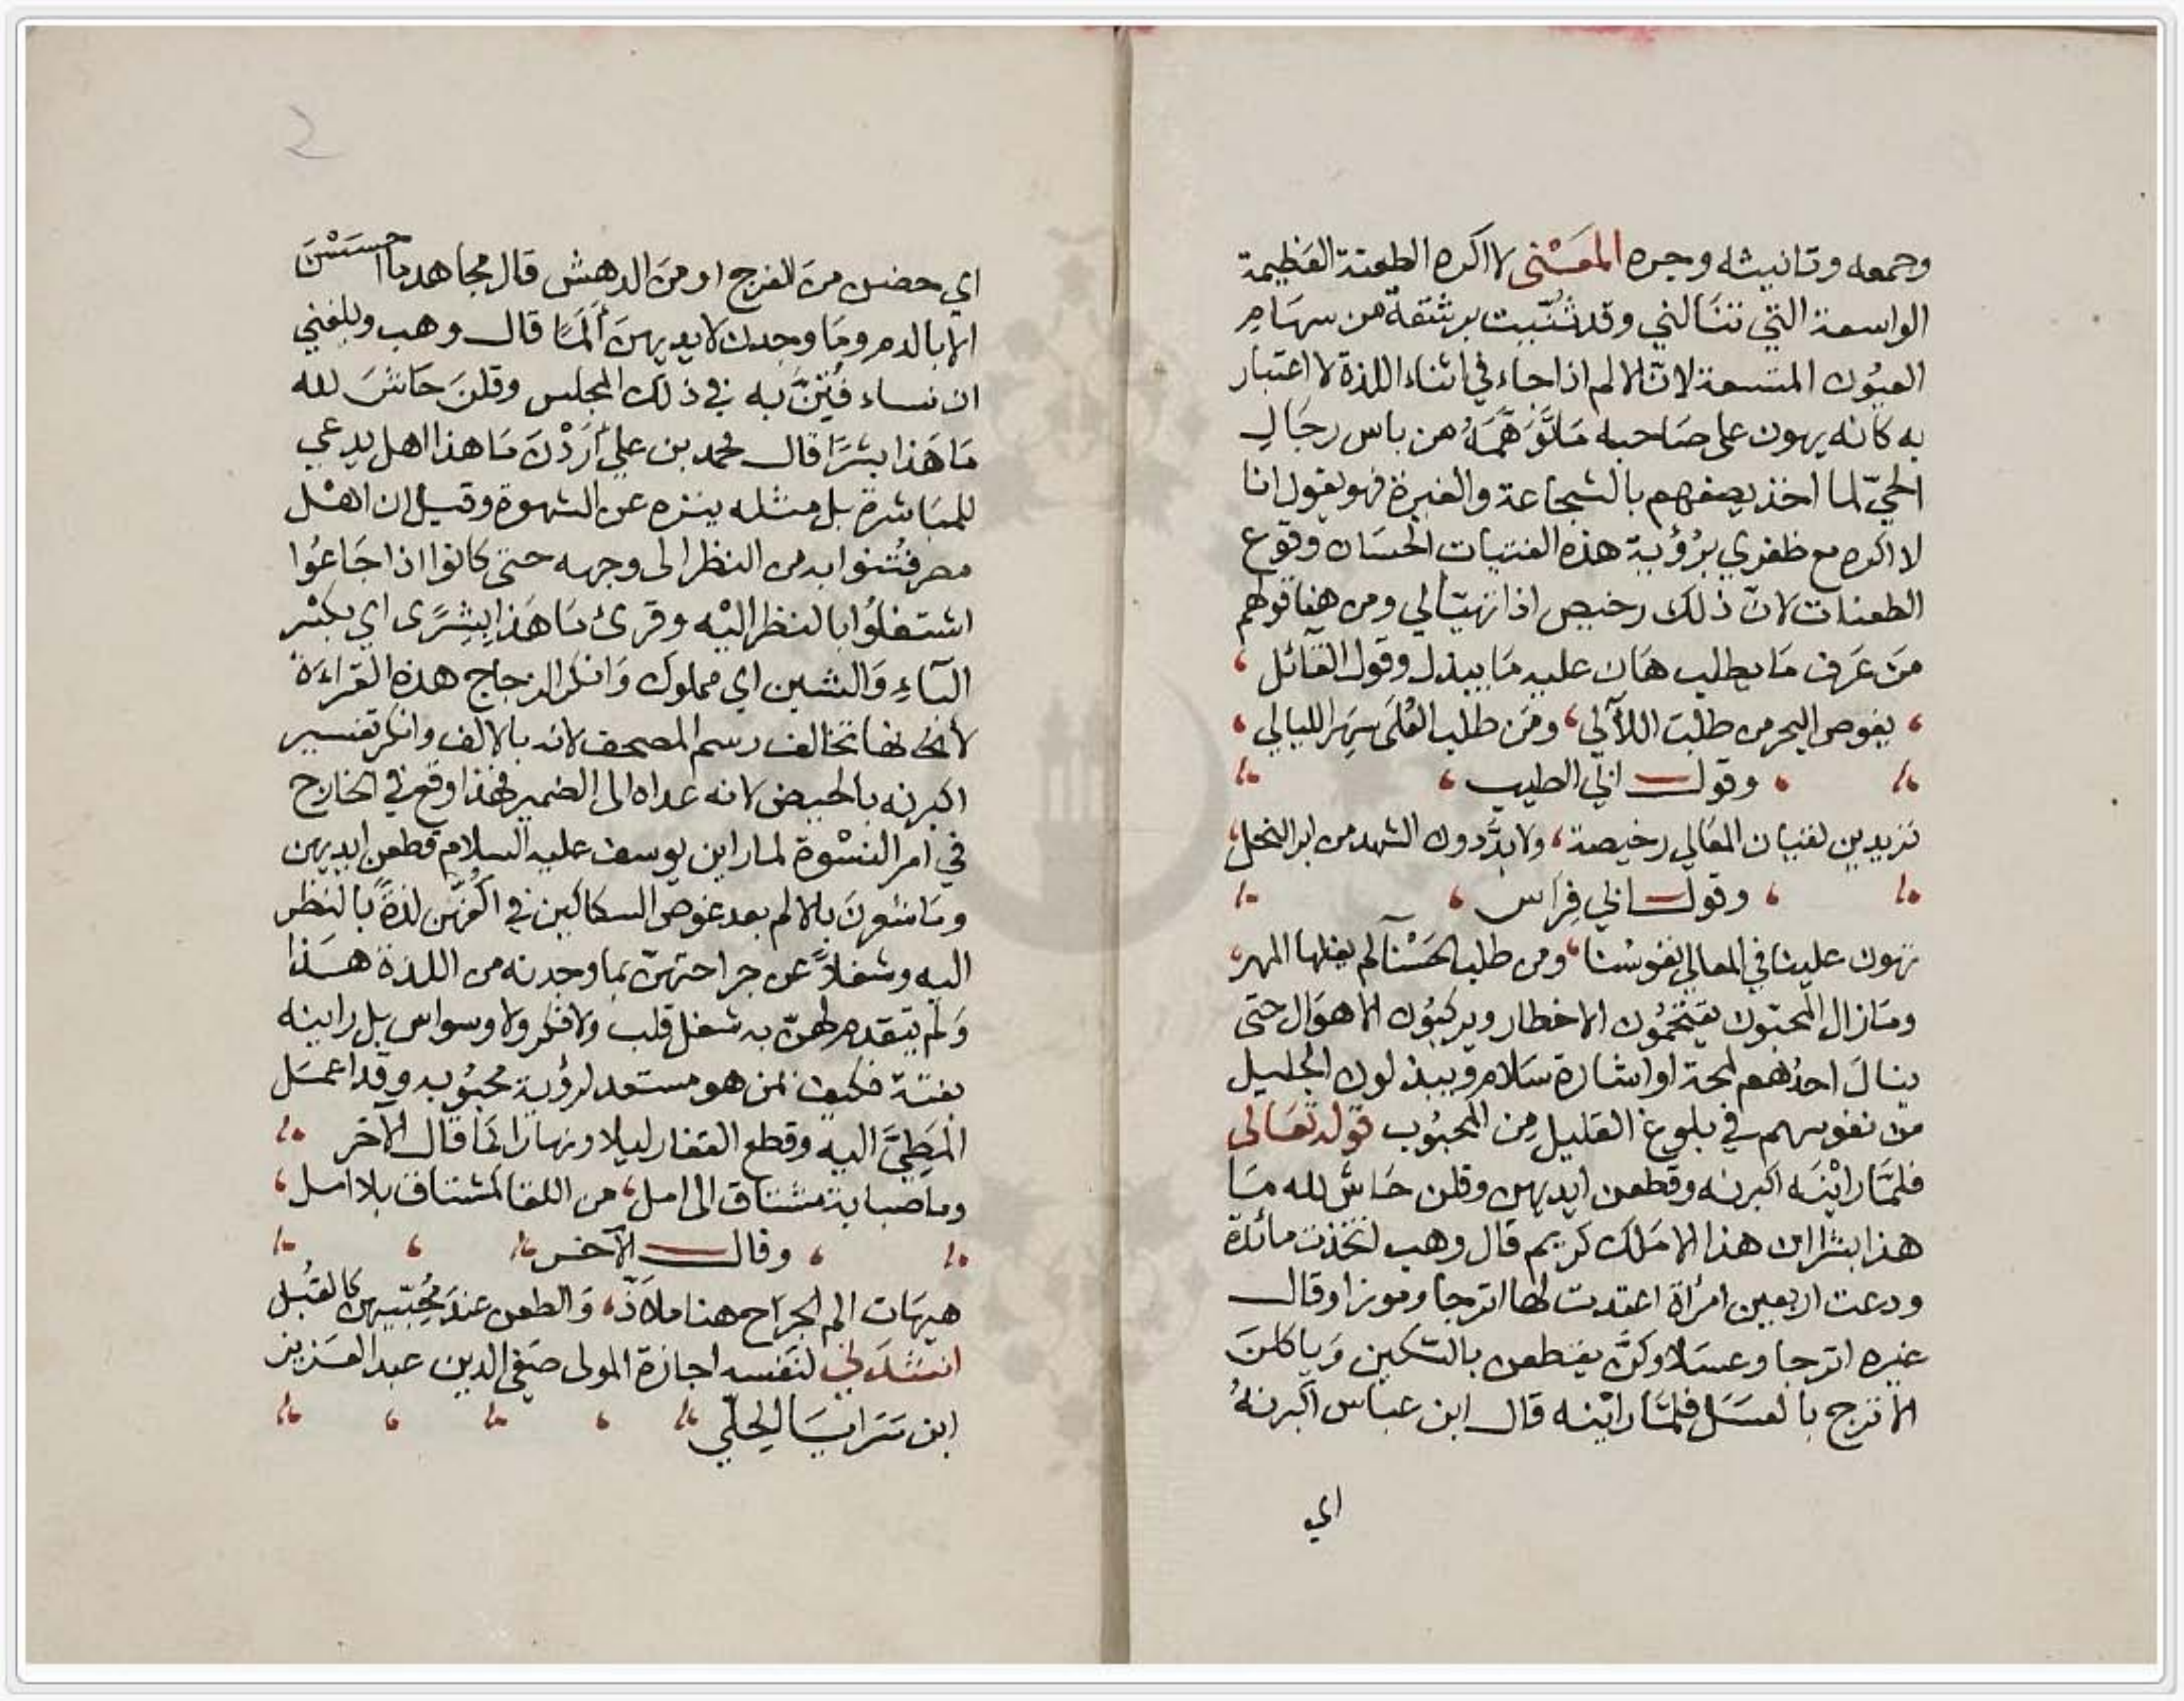 وجمعه وتانيثه وجره المعنى لا اكره الطعنة العظيمة
الواسعة التي تنالني وقد شُبّيت برشقة من سهام
العيون المتسعة لانّ الالم اذا جاء في اثناء اللذة لا اعتبار
به كانه يهون على صاحبه مَا تَوَهَّمَهُ من باس رجال
الحيّ لما اخذ يصفهم بالشجاعة والغيرة فهو يقول انا
لا اكره مع ظفري برُؤية هذه الفتيات الحسان وقوع
الطعنات لانّ ذلك رخيص اذا تهيّا لي ومن هنا قولهم
مَن عَرف مَا يطلب هَان عليه مَا يبذل وقول القائل
يغوص البحر من طلب اللآلي ومَن طلب العُلَى سَهِرَ الليالي
وقول ابي الطيب
تريدين لقيان المعالي رخيصة ولا بدّ دون الشهد من ابر النحل
وقول ابي فِرَاس
تهون علينا في المعالي نفوسُنا ومن طلب الحَسْنآ لم يغلها المهر
ومَا زال المحبّون يقتحمُون الاخطار ويركبُون الاهوَال حتى
ينال احدُهم لمحة او اشارة سَلام ويبذلون الجليل
من نفوسهم في بلوغ القليل مِن المحبُوب قوله تعَالى
فلمَّا رايْنَه اكبرنه وقطعن ايديهن وقلن حَاشَ لله مَا
هذا بشرا ان هذا الا مَلك كريم قال وهب اتخذت مائدة
ودعت اربعين امرأة اعتدت لها اترجا وموزا وقال
غيره اترجا وعسَلا وكنّ يقطعن بالسّكين وَياكلنَ
الاترج بالعسَل فلمَّا رايْنه قال ابن عباس اكبرنهُ
اي
2
اي حضن منَ الفرح او منَ الدهش قال مجاهد ما احسَسْنَ
الا بالدم ومَا وجدن لايديهنَ أَلَمًا قال وهب وبلغني
ان نساء فُتِنَّ به في ذلك المجلس وقلنَ حَاشَ لله
مَا هَذا بشَرًا قال محمد بن علي أرَدْنَ مَا هذا اهل يدعى
للمبَاشرة بل مثله ينزه عن الشهوة وقيل ان اهْل
مصر فُتنوا به من النظر الى وجهه حتى كانوا اذا جَاعُوا
اشتغلُوا بالنظر اليْه وقرئ مَا هَذا بِشِرًى اي بكسْر
البَاءِ وَالشين اي مملوك وَانكر الزجاج هذه القراءَة
لانها تخالف رسم المصحف لانه بالالف وانكر تفسير
اكبرنه بالحيض لانه عداه الى الضمير فهذا وقع في الخارج
في امر النسْوة لما راين يوسف عليه السلام قطعن ايديهن
ومَا شعرنَ بالالم بعد غوص السكاكين في اكُفّهن لذةً بالنظر
اليه وشغلاً عن جراحتهنّ بما وجدنه من اللذة هَذا
وَلم يتقدم لهنّ به شغل قلب ولا فكر ولا وسواس بل راينه
بغتة فكيف بمن هو مستعد لرؤية محبُوبه وقد اعمَل
المَطِيَّ اليه وقطع القفار ليلا ونهارا كمَا قال الآخر
وما صبابة مشتاق الى امل من اللقا كمشتاق بلا امل
وقال الآخر
هيهَات الم الجراح هنا ملاَذّ وَالطعن عندَ مُحِبّيهن كالقُبل
انشدَني لنَفسه اجازة المولى صَفي الدين عبد العَزيز
ابن سَرَايَا الحِلّي